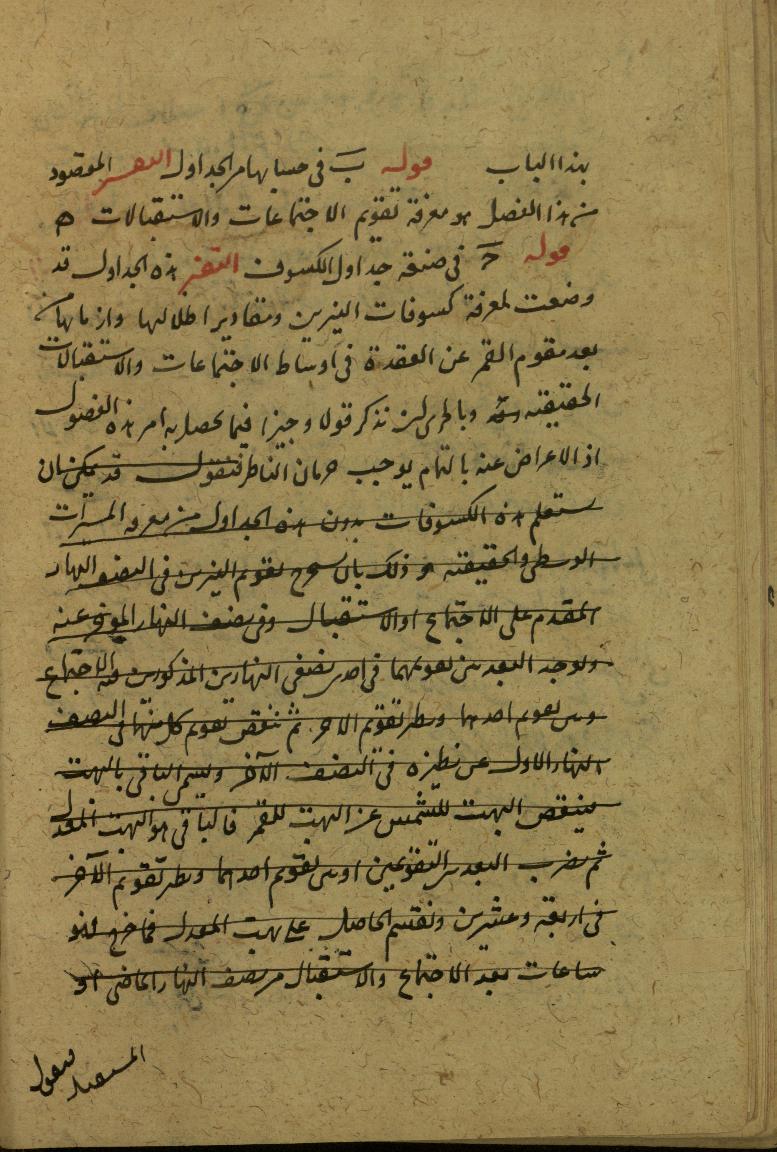 بهذا الباب قوله ب في حسابها من الجداول التفسير المقصود
من هذا الفصل هو معرفة تقويم الاجتماعات والاستقبالات ه
قوله ج في صنعة جداول الكسوف التفسير هذه الجداول قد
وضعت لمعرفة كسوفات النيرين ومقادير اظلالها وازمانها من
بعد مقوم القمر عن العقدة في اوساط الاجتماعات والاستقبالات
الحقيقية نذكر قولا وجيزا فيما يحصل به امر هذه الفصول
اذ الاعراض عنه بالتمام يوجب حرمان الناظر فنقول قد يمكن ان
ستعلم هذه الكسوفات بدون هذه الجداول من معرفة المسيرات
الوسطى والحقيقية وذلك بان نستخرج تقويم النيرين في النصف النهار
المقدم على الاجتماع او الاستقبال وفي نصف النهار الموخر عنه
ويوجد البعد بين تقويمهما في احدى نصفي النهارين المذكورين في الاجتماع
وبين تقويم احدهما ونظير تقويم الاخر ثم ننقص تقويم كل منهما في النصف
النهار الاول عن نظيره في النصف الآخر ويسمى الباقي بالبهت
فينقص البهت للشمس عن البهت للقمر فالباقي هو البهت المعدل
ثم يضرب البعد بين التقويمين او بين تقويم احدهما ونظير تقويم الآخر
في اربعة وعشرين ونقسم الحاصل على بهت المعدل فما خرج فهو
ساعات بعد الاجتماع والاستقبال من نصف النهار الماضي او